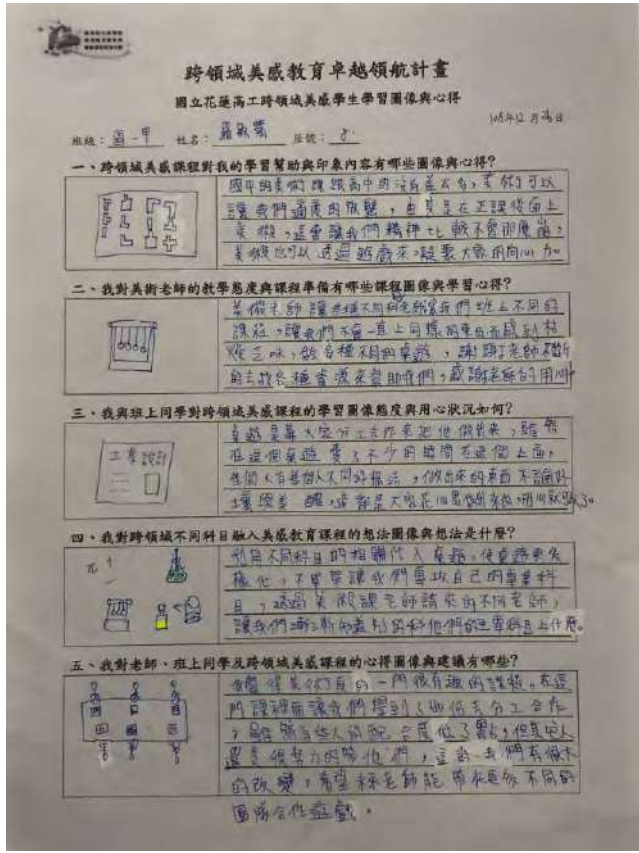 跨領域美感教育卓越領航計畫
國立花蓮高工跨領域美感學生學習圖像與心得
108年12月 日
班級： 一甲 姓名： 座號：
一、跨領域美感課程對我的學習幫助與印象內容有哪些圖像與心得?
國中的美術課跟高中的沒有差太多，美術可以
讓我們適度的放鬆，尤其是在正課後面上
美術，這會讓我們精神比較不會那麼
美術也可以透過遊戲來凝聚大家的向心力。
二、我對美術老師的教學態度與課程準備有哪些課程圖像與學習心得?
美術老師讓各種不同科老師來我們班上不同的
課程，讓我們不會一直上同樣的東西而感到枯
燥乏味，做各種不同的桌遊，謝謝老師不斷
的去找各種資源來幫助我們，感謝老師的用心
三、我與班上同學對跨領域美感課程的學習圖像態度與用心狀況如何?
工業設計
桌遊是靠大家分工合作來把他做出來，雖然
在這個桌遊 費了不少的時間在這個上面，
每個人有每個人不同的想法，做出來的東西不論好
壞 美 醜，這 都是大家花心思做出來的，用心就 了。
四、我對跨領域不同科目融入美感教育課程的想法圖像與想法是什麼?
π
利用不同科目的相關代入桌遊，使桌遊更多
樣化，不單單讓我們專攻自己的專業科
目，透過美術課老師請來的不同老師，
讓我們漸漸的 別的科他們的主要科目上什麼。
五、我對老師、班上同學及跨領域美感課程的心得圖像與建議有哪些?
我覺得美術真的一門很有趣的課程。在這
門課裡面讓我們學到了如何去分工合作
，雖然有些人的配合度低了點，但其它人
還是很努力的幫他們，這對我們有很大
的改變，希望 老師能帶來更多不同的
團隊合作遊戲。